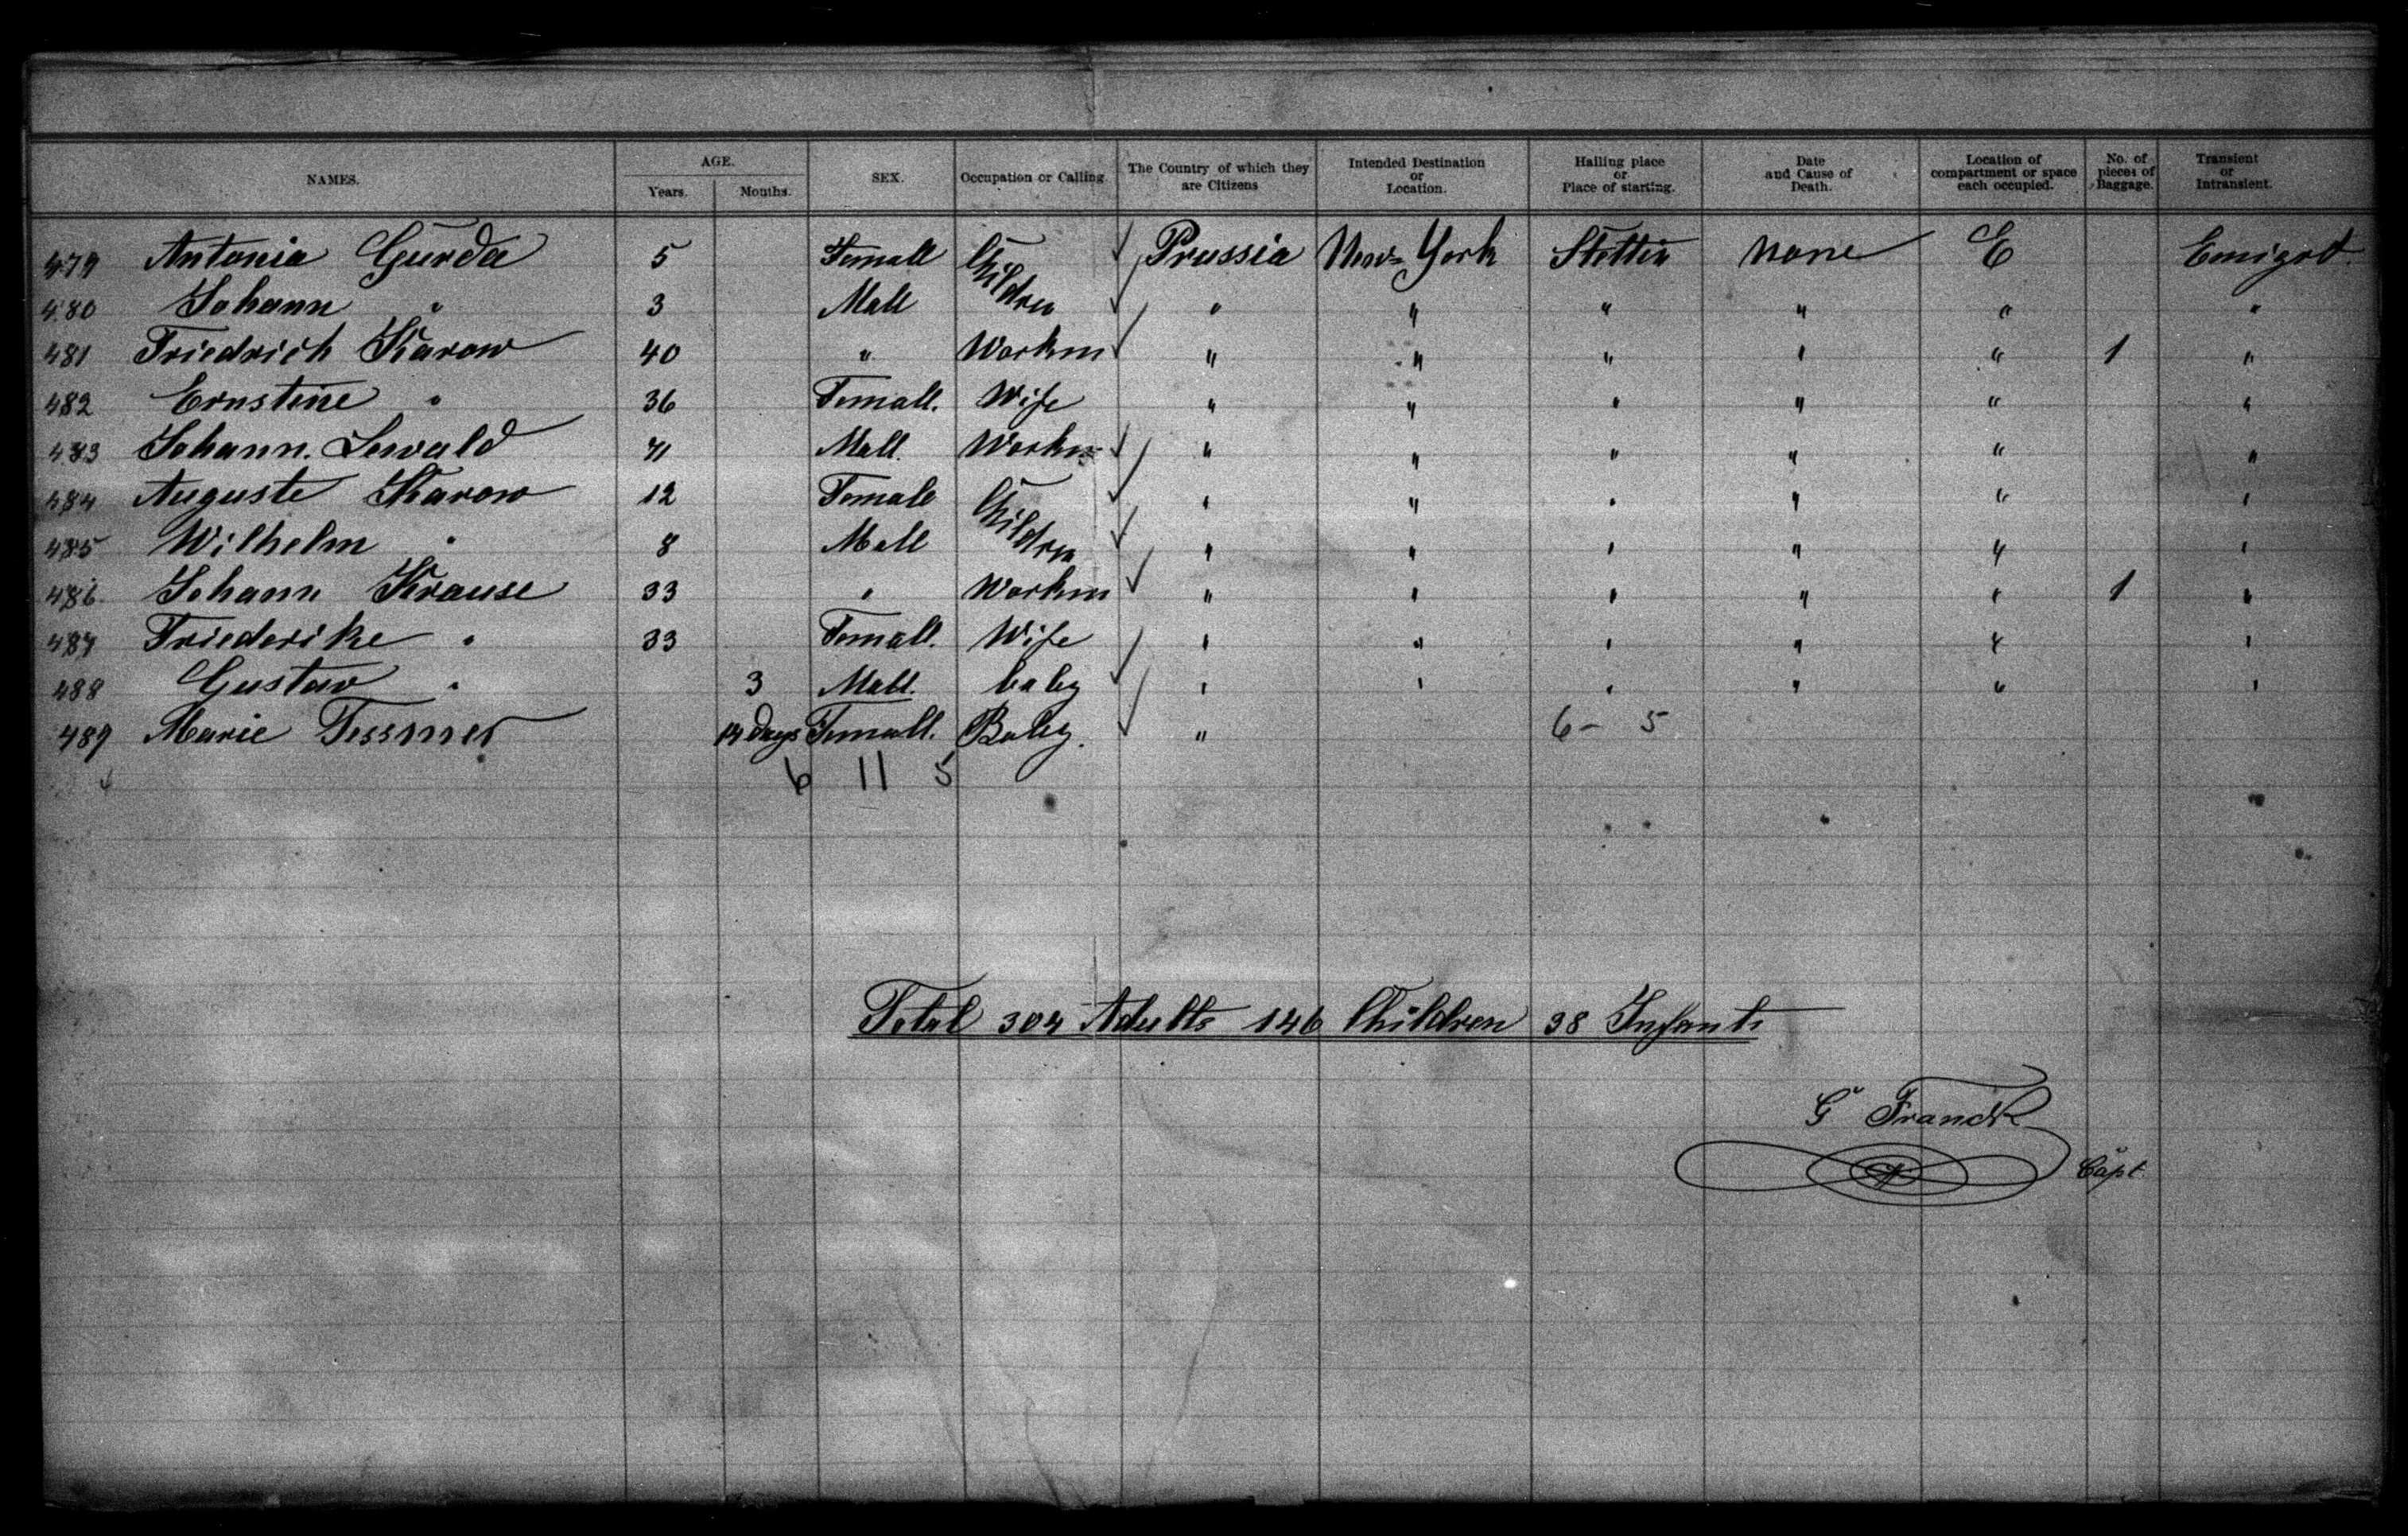 NAMES. AGE. Years. Months. SEX. Occupation or Calling. The Country of which they are Citizens Intended Destination or Location. Hailing place or Place of starting. Date and Cause of Death. Location of compartment or space each occupied. No. of pieces of Baggage. Transient or Intransient.
479 Antonia Gurda 5 Femall Children Prussia New-York Stettin None E Emigrt.
480 Johann " 3 Mall " " " " " "
481 Friedrich Karow 40 " Workm " " " " " 1 "
482 Ernstine " 36 Femall. Wife " " " " " "
483 Johann. Lewald 71 Mall. Workm " " " " " "
484 Auguste Karow 12 Femall Children " " " " " "
485 Wilhelm " 8 Mall " " " " " "
486 Johann Krause 33 " Workm " " " " " 1 "
487 Friederike " 33 Femall. Wife " " " " " "
488 Gustav " 3 Mall. baby " " " " " "
489 Marie Tessmer 14 days Femall. Baby. " 6 - 5
6 11 5
Total 304 Adults 146 Children 38 Infants
G Franck
Capt.